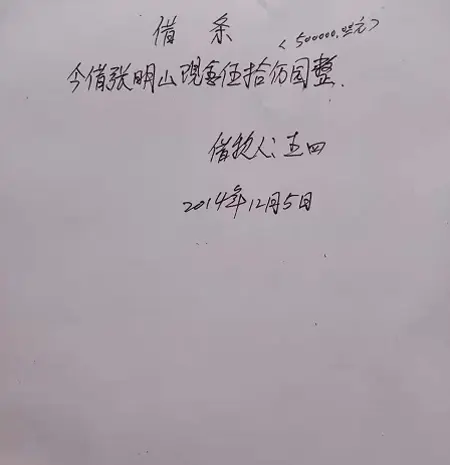 借条
（500000.00元）
今借张明山现金伍拾万圆整.
借款人:王四
2014年12月5日